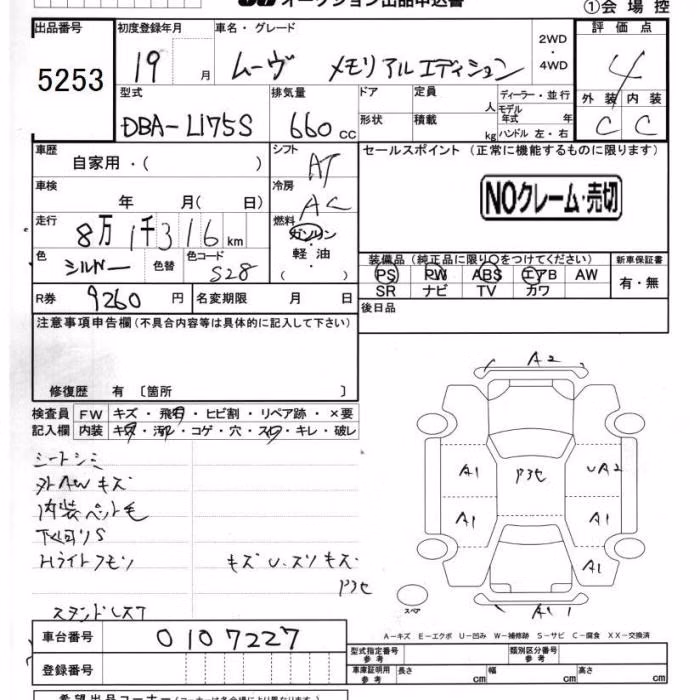 オークション出品申込書
①会場控
出品番号 初度登録年月 車名・グレード 2WD・4WD 評価点
5253 19 月 ムーヴ メモリアルエディション 4
型式 排気量 ドア 定員 人 ディーラー・並行 外装 内装
DBA-L175S 660 cc 形状 積載 kg モデル年式 年 ハンドル 左・右 C C
車歴 自家用・( ) シフト AT セールスポイント (正常に機能するものに限ります)
車検 年 月( 日) 冷房 AC NOクレーム・売切
走行 8万1千316 km 燃料 ガソリン・軽油・( )
色 シルバー 色替 色コード S28 装備品(純正品に限り○をつけてください) 新車保証書
PS PW ABS エアB AW 有・無
SR ナビ TV カワ
R券 9260 円 名変期限 月 日 後日品
注意事項申告欄(不具合内容等は具体的に記入して下さい)
修復歴 有 〔箇所 〕
検査員 FW キズ・飛石・ヒビ割・リペア跡・×要
記入欄 内装 キズ・汚れ・コゲ・穴・スレ・キレ・破レ
シートシミ
外AWキズ
内装ペット毛
下回りS
Hライトクモリ キズU.スリキズ
スタンドレスク
A2
A1 UA2
A1 A1
A1
A1 1
スペア
A-キズ E-エクボ U-凹み W-補修跡 S-サビ C-腐食 XX-交換済
車台番号 0107227
型式指定番号 参考 類別区分番号 参考
登録番号 車庫証明用 参考 長さ cm 幅 cm 高さ cm
希望出品コーナー